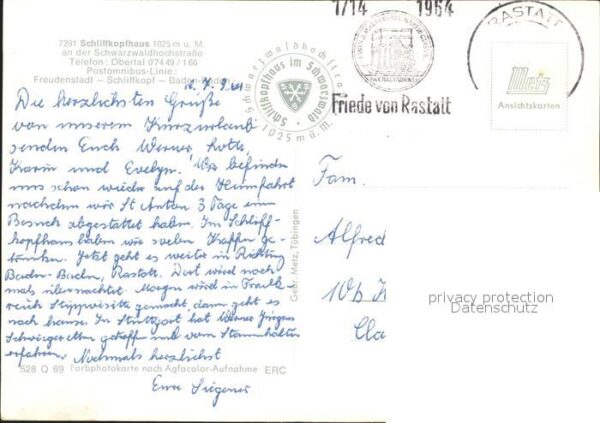 7291 Schliffkopfhaus 1025 m u. M.
an der Schwarzwaldhochstraße
Telefon: Obertal 07449 / 166
Postomnibus-Linie:
Freudenstadt — Schliffkopf — Baden-Baden
Schliffkopfhaus im Schwarzwald
1025 m ü. M.
1714 1964
Friede von Rastatt
RASTATT
Metz
Ansichtskarten
Die herzlichsten Grüße
von unserem Kurzurlaub
senden Euch Werner, Ruth,
Karin und Evelyn. Wir befinden
uns schon wieder auf der Heimfahrt
nachdem wir St Anton 3 Tage ein
Besuch abgestattet haben. Im Schliff-
kopfhaus haben wir soeben Kaffee ge-
trunken. Jetzt geht es weiter in Richtung
Baden-Baden, Rastatt. Dort wird noch
mals übernachtet. Morgen wird in Frank-
reich Stippvisite gemacht, dann geht es
nach hause. In Stuttgart hat Werner Jürgen
Schwiegereltern getroffen und vom Stammhalter
erfahren. Nochmals herzlichst
Eure
Gebr. Metz, Tübingen
Fam.
Alfred
privacy protection
Datenschutz
528 Q 69 Farbphotokarte nach Agfacolor-Aufnahme ERC